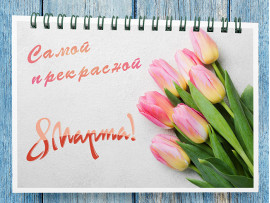 Самой
прекрасной
8 Марта!